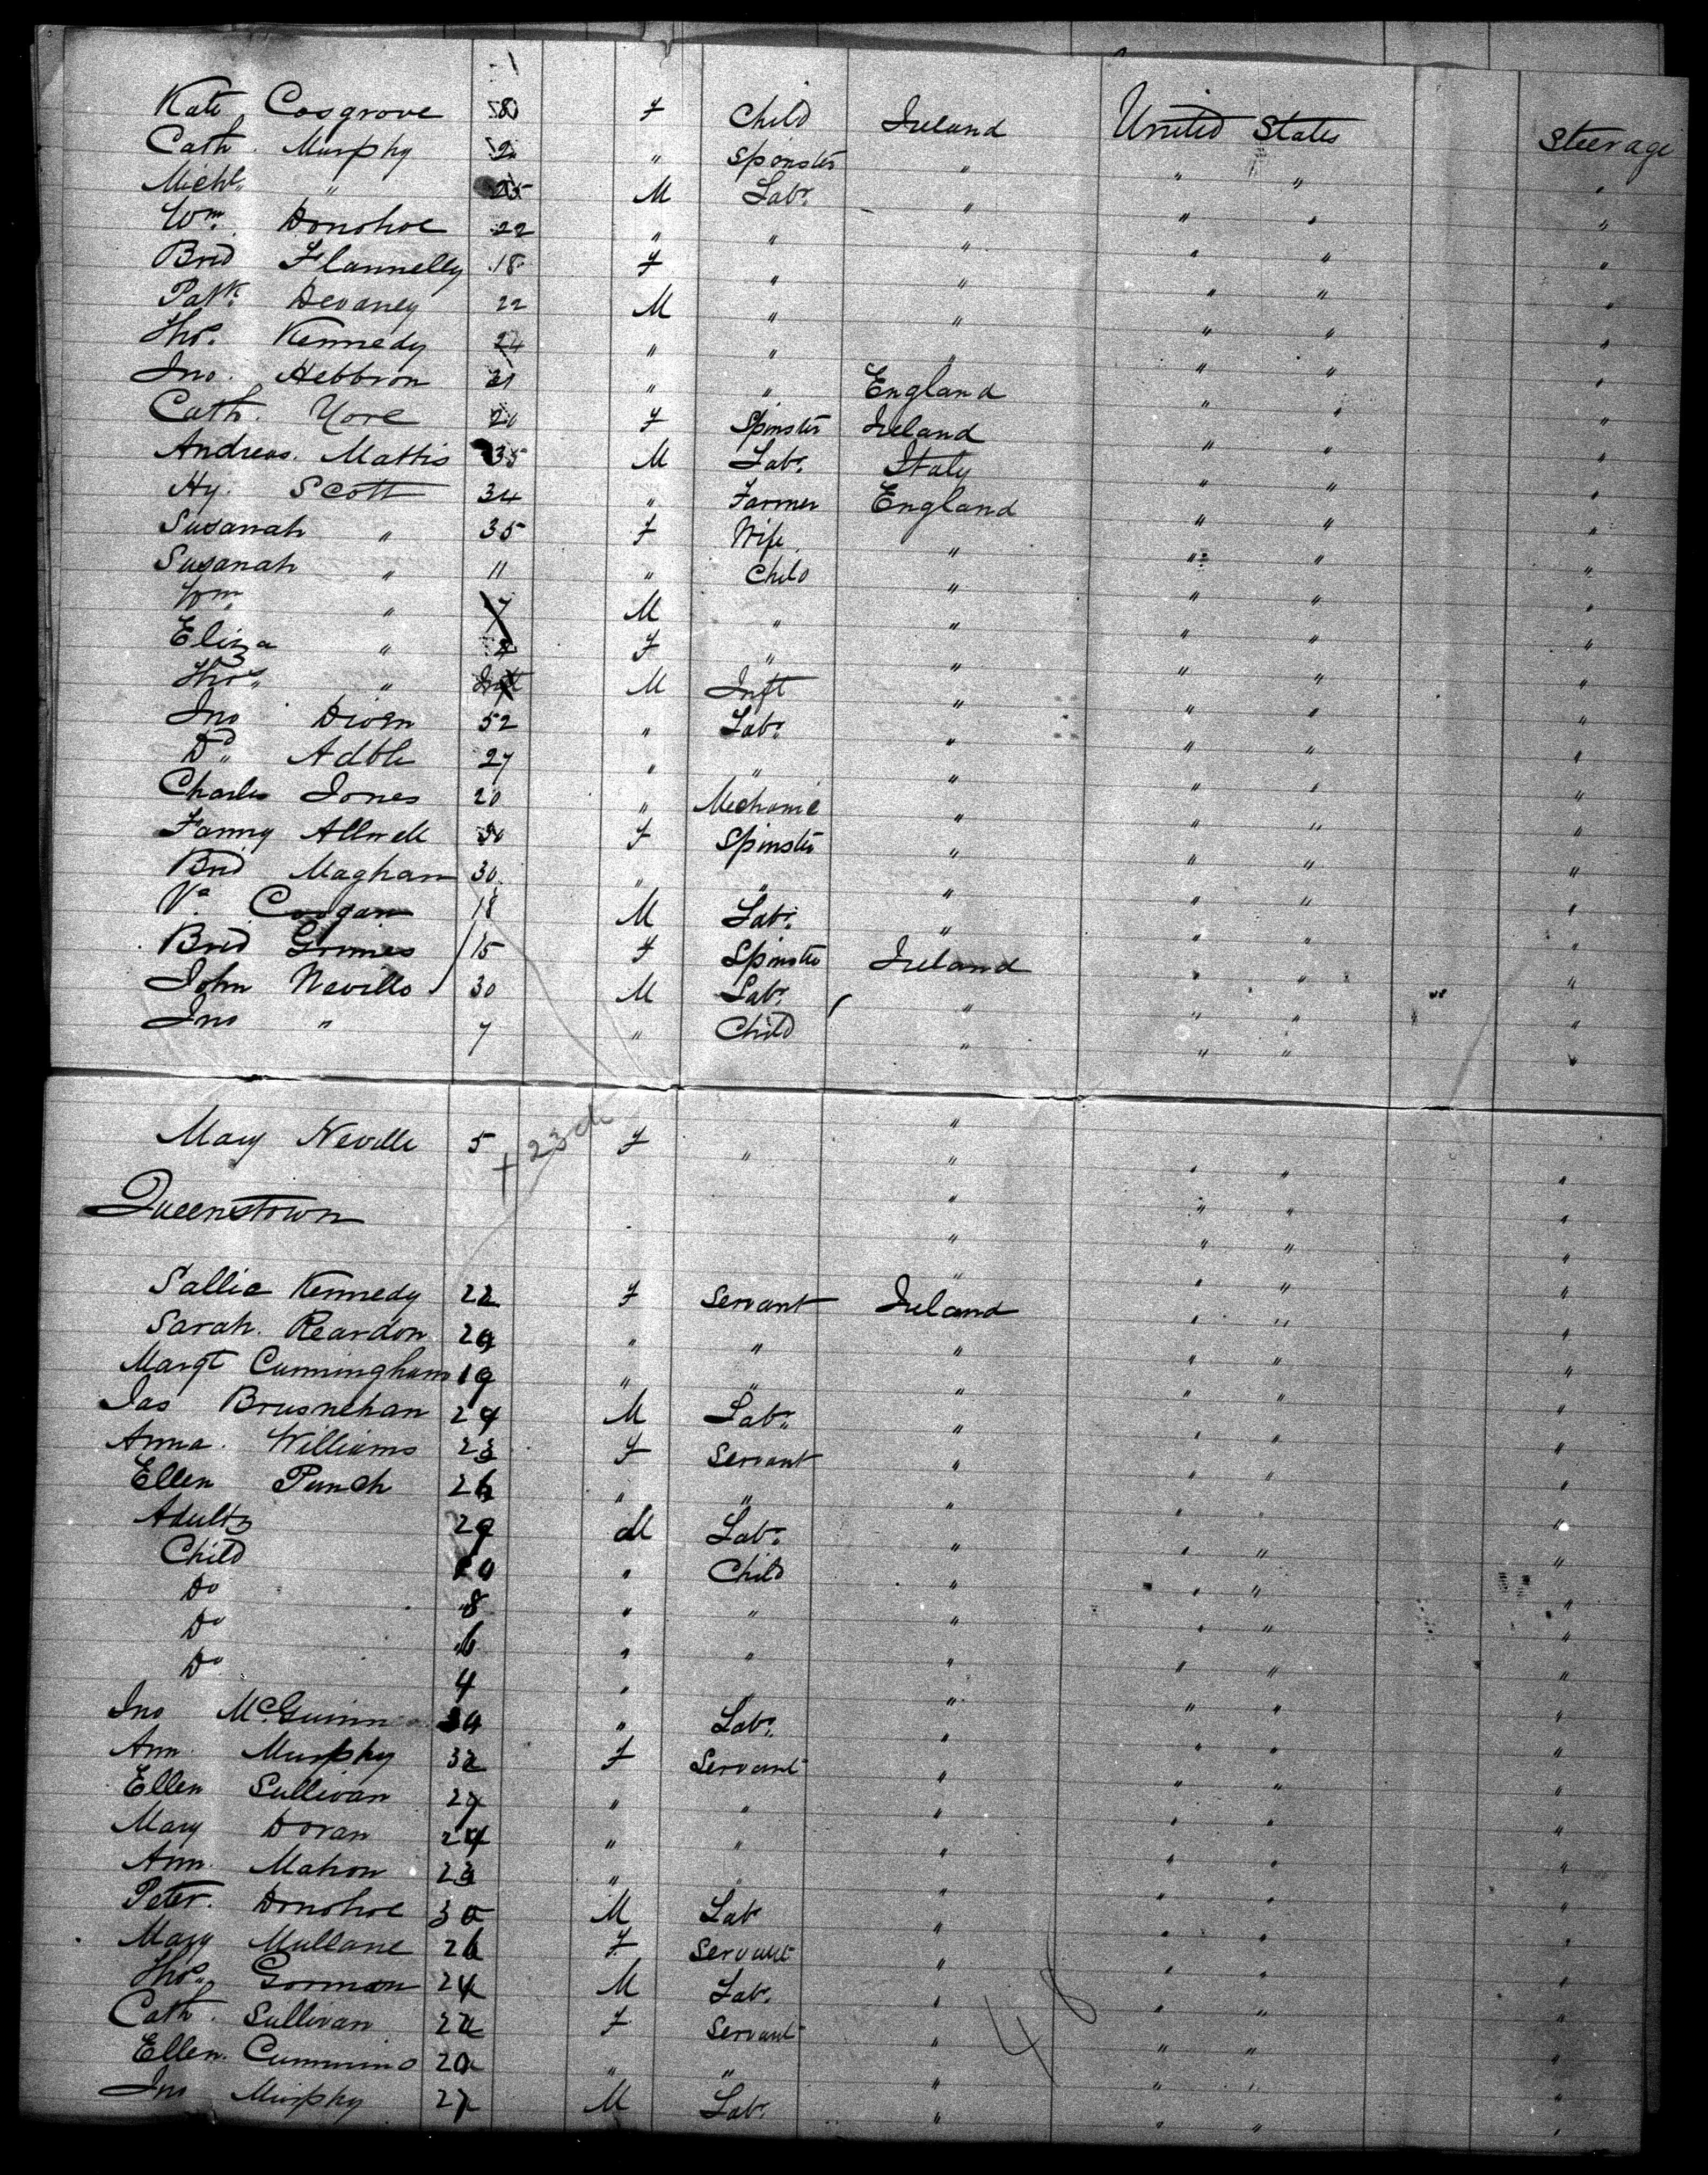 Kate Cosgrove 8 F Child Ireland United States Steerage
Cath. Murphy 2 " Spinster " " " "
Michl. " 25 M Labr. " " " "
Wm. Donohoe 22 " " " " " "
Brid Flannelly 18 F " " " " "
Patk. Devaney 22 M " " " " "
Thos. Kennedy 24 " " " " " "
Jno. Hebbron 31 " " England " " "
Cath. Yore 20 F Spinster Ireland " " "
Andreas. Mattis 35 M Labr. Italy " " "
Hy. Scott 34 " Farmer England " " "
Susanah " 35 F Wife " " " "
Susanah " 11 " Child " " " "
Wm " 7 M " " " " "
Eliza " F " " " " "
Thos. " Inft M Inft " " " "
Jno Diven 52 " Labr. " " " "
Dd. Adble 27 " " " " " "
Charles Jones 20 " Mechanic " " " "
Fanny Allwell 30 F Spinster " " " "
Brid Maghan 30 " " " " " "
Coogan 18 M Labr. " " " "
Brid Grimes 15 F Spinster Ireland " " "
John Nevills 30 M Labr. " " " "
Jno " 7 " Child " " " "
Mary Neville 5 F " " " " "
Queenstown
Sallie Kennedy 22 F Servant Ireland " " "
Sarah. Reardon 29 " " " " " "
Margt Cunningham 19 " " " " " "
Jas Brusnehan 24 M Labr. " " " "
Anna. Williams 23 F Servant " " " "
Ellen Punch 26 " " " " " "
Adults 29 M Labr. " " " "
Child 10 " Child " " " "
Do 8 " " " " " "
Do 6 " " " " " "
Do 4 " " " " " "
Jno McGuinn 30 " Labr. " " " "
Ann. Murphy 32 F Servant " " " "
Ellen Sullivan 27 " " " " " "
Mary Doran 24 " " " " " "
Ann. Mahon 23 " " " " " "
Peter. Donohoe 30 M Labr " " " "
Mary Mullane 26 F Servant " " " "
Thos. Gorman 24 M Labr. " " " "
Cath. Sullivan 22 F Servant " " " "
Ellen. Cummins 20 " " " " " "
Jno Murphy 27 M Labr. " " " "
48